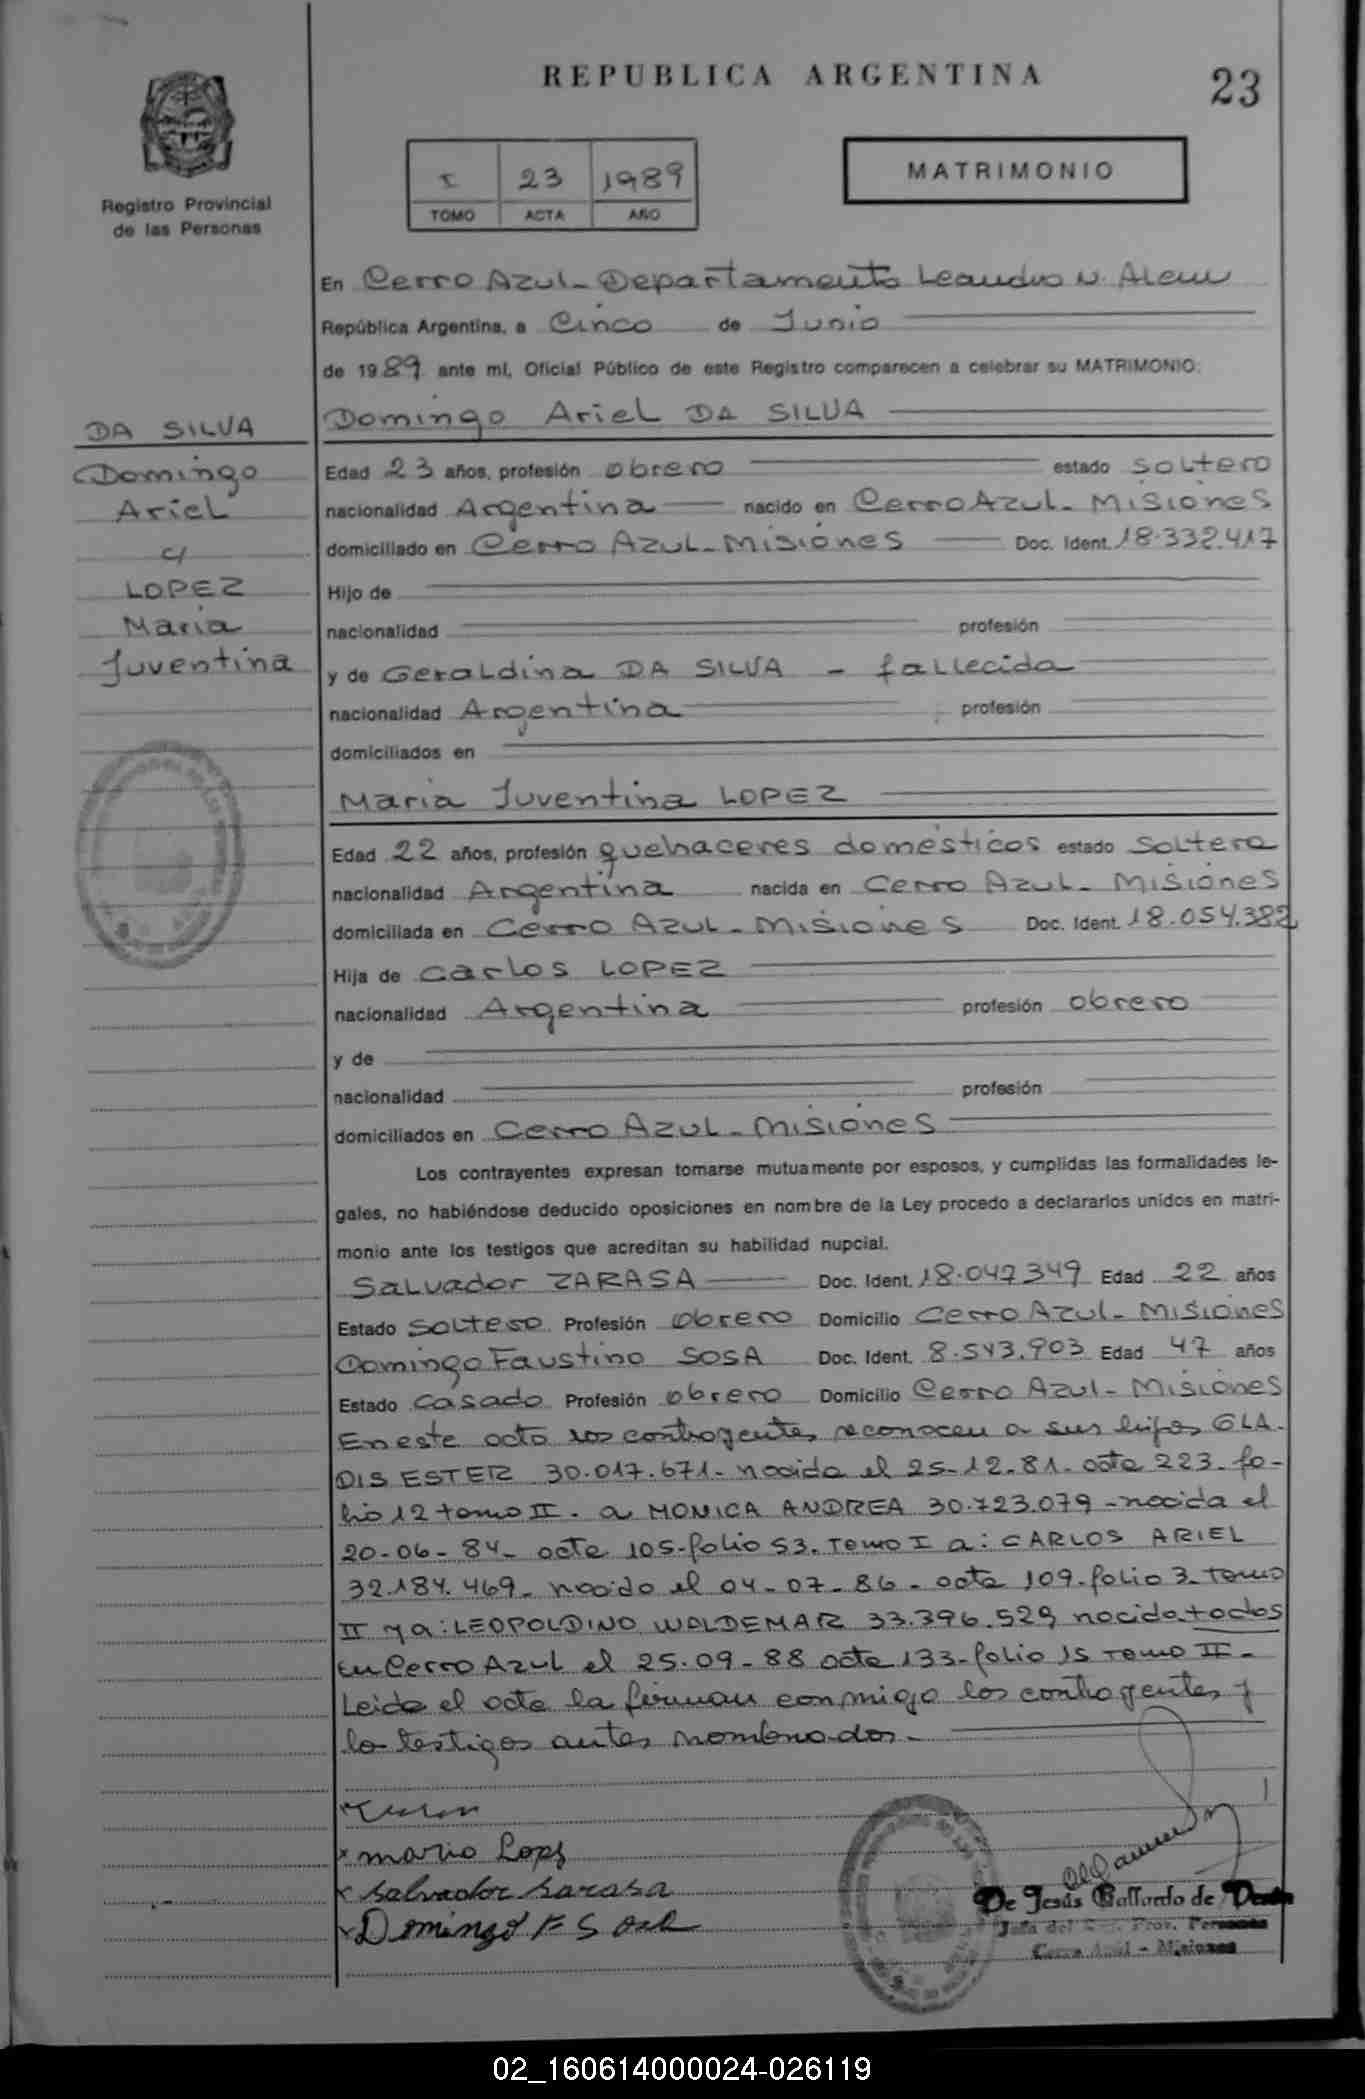 REPUBLICA ARGENTINA
23
Registro Provincial
de las Personas
I 23 1989
TOMO ACTA AÑO
MATRIMONIO
En Cerro Azul - Departamento Leandro N. Alem
República Argentina, a Cinco de Junio
de 1989 ante mí, Oficial Público de este Registro comparecen a celebrar su MATRIMONIO:
Domingo Ariel DA SILVA
DA SILVA
Domingo
Ariel
c/
LOPEZ
Maria
Juventina
Edad 23 años, profesión obrero estado soltero
nacionalidad Argentina nacido en Cerro Azul - Misiones
domiciliado en Cerro Azul - Misiones Doc. Ident. 18.332.417
Hijo de
nacionalidad profesión
y de Geraldina DA SILVA - fallecida
nacionalidad Argentina profesión
domiciliados en
Maria Juventina LOPEZ
Edad 22 años, profesión quehaceres domésticos estado soltera
nacionalidad Argentina nacida en Cerro Azul - Misiones
domiciliada en Cerro Azul - Misiones Doc. Ident. 18.054.382
Hija de Carlos LOPEZ
nacionalidad Argentina profesión obrero
y de
nacionalidad profesión
domiciliados en Cerro Azul - Misiones
Los contrayentes expresan tomarse mutuamente por esposos, y cumplidas las formalidades le-
gales, no habiéndose deducido oposiciones en nombre de la Ley procedo a declararlos unidos en matri-
monio ante los testigos que acreditan su habilidad nupcial.
Salvador ZARASA Doc. Ident. 18.047349 Edad 22 años
Estado soltero Profesión obrero Domicilio Cerro Azul - Misiones
Domingo Faustino SOSA Doc. Ident. 8.543.903 Edad 47 años
Estado casado Profesión obrero Domicilio Cerro Azul - Misiones
En este acto los contrayentes reconocen a sus hijos GLA-
DIS ESTER 30.017.671 - nacida el 25-12-81 - acta 223 - fo-
lio 12 tomo II - a MONICA ANDREA 30.723.079 - nacida el
20-06-84 - acta 105 - folio 53 - Tomo I a: CARLOS ARIEL
32.184.469 - nacido el 04-07-86 - acta 109 - folio 3 - Tomo
II y a: LEOPOLDINO WALDEMAR 33.396.529 nacido todos
en Cerro Azul el 25.09-88 acta 133 - folio 15 Tomo II -
Leida el acta la firman conmigo los contrayentes y
lo testigos antes nombrados -
x maria Lopz
x salvador sarasa
x Domingo F Sosa
De Jesús Gallardo de
Jefa del Prov. Personas
Cerro Azul - Misiones
02_160614000024-026119